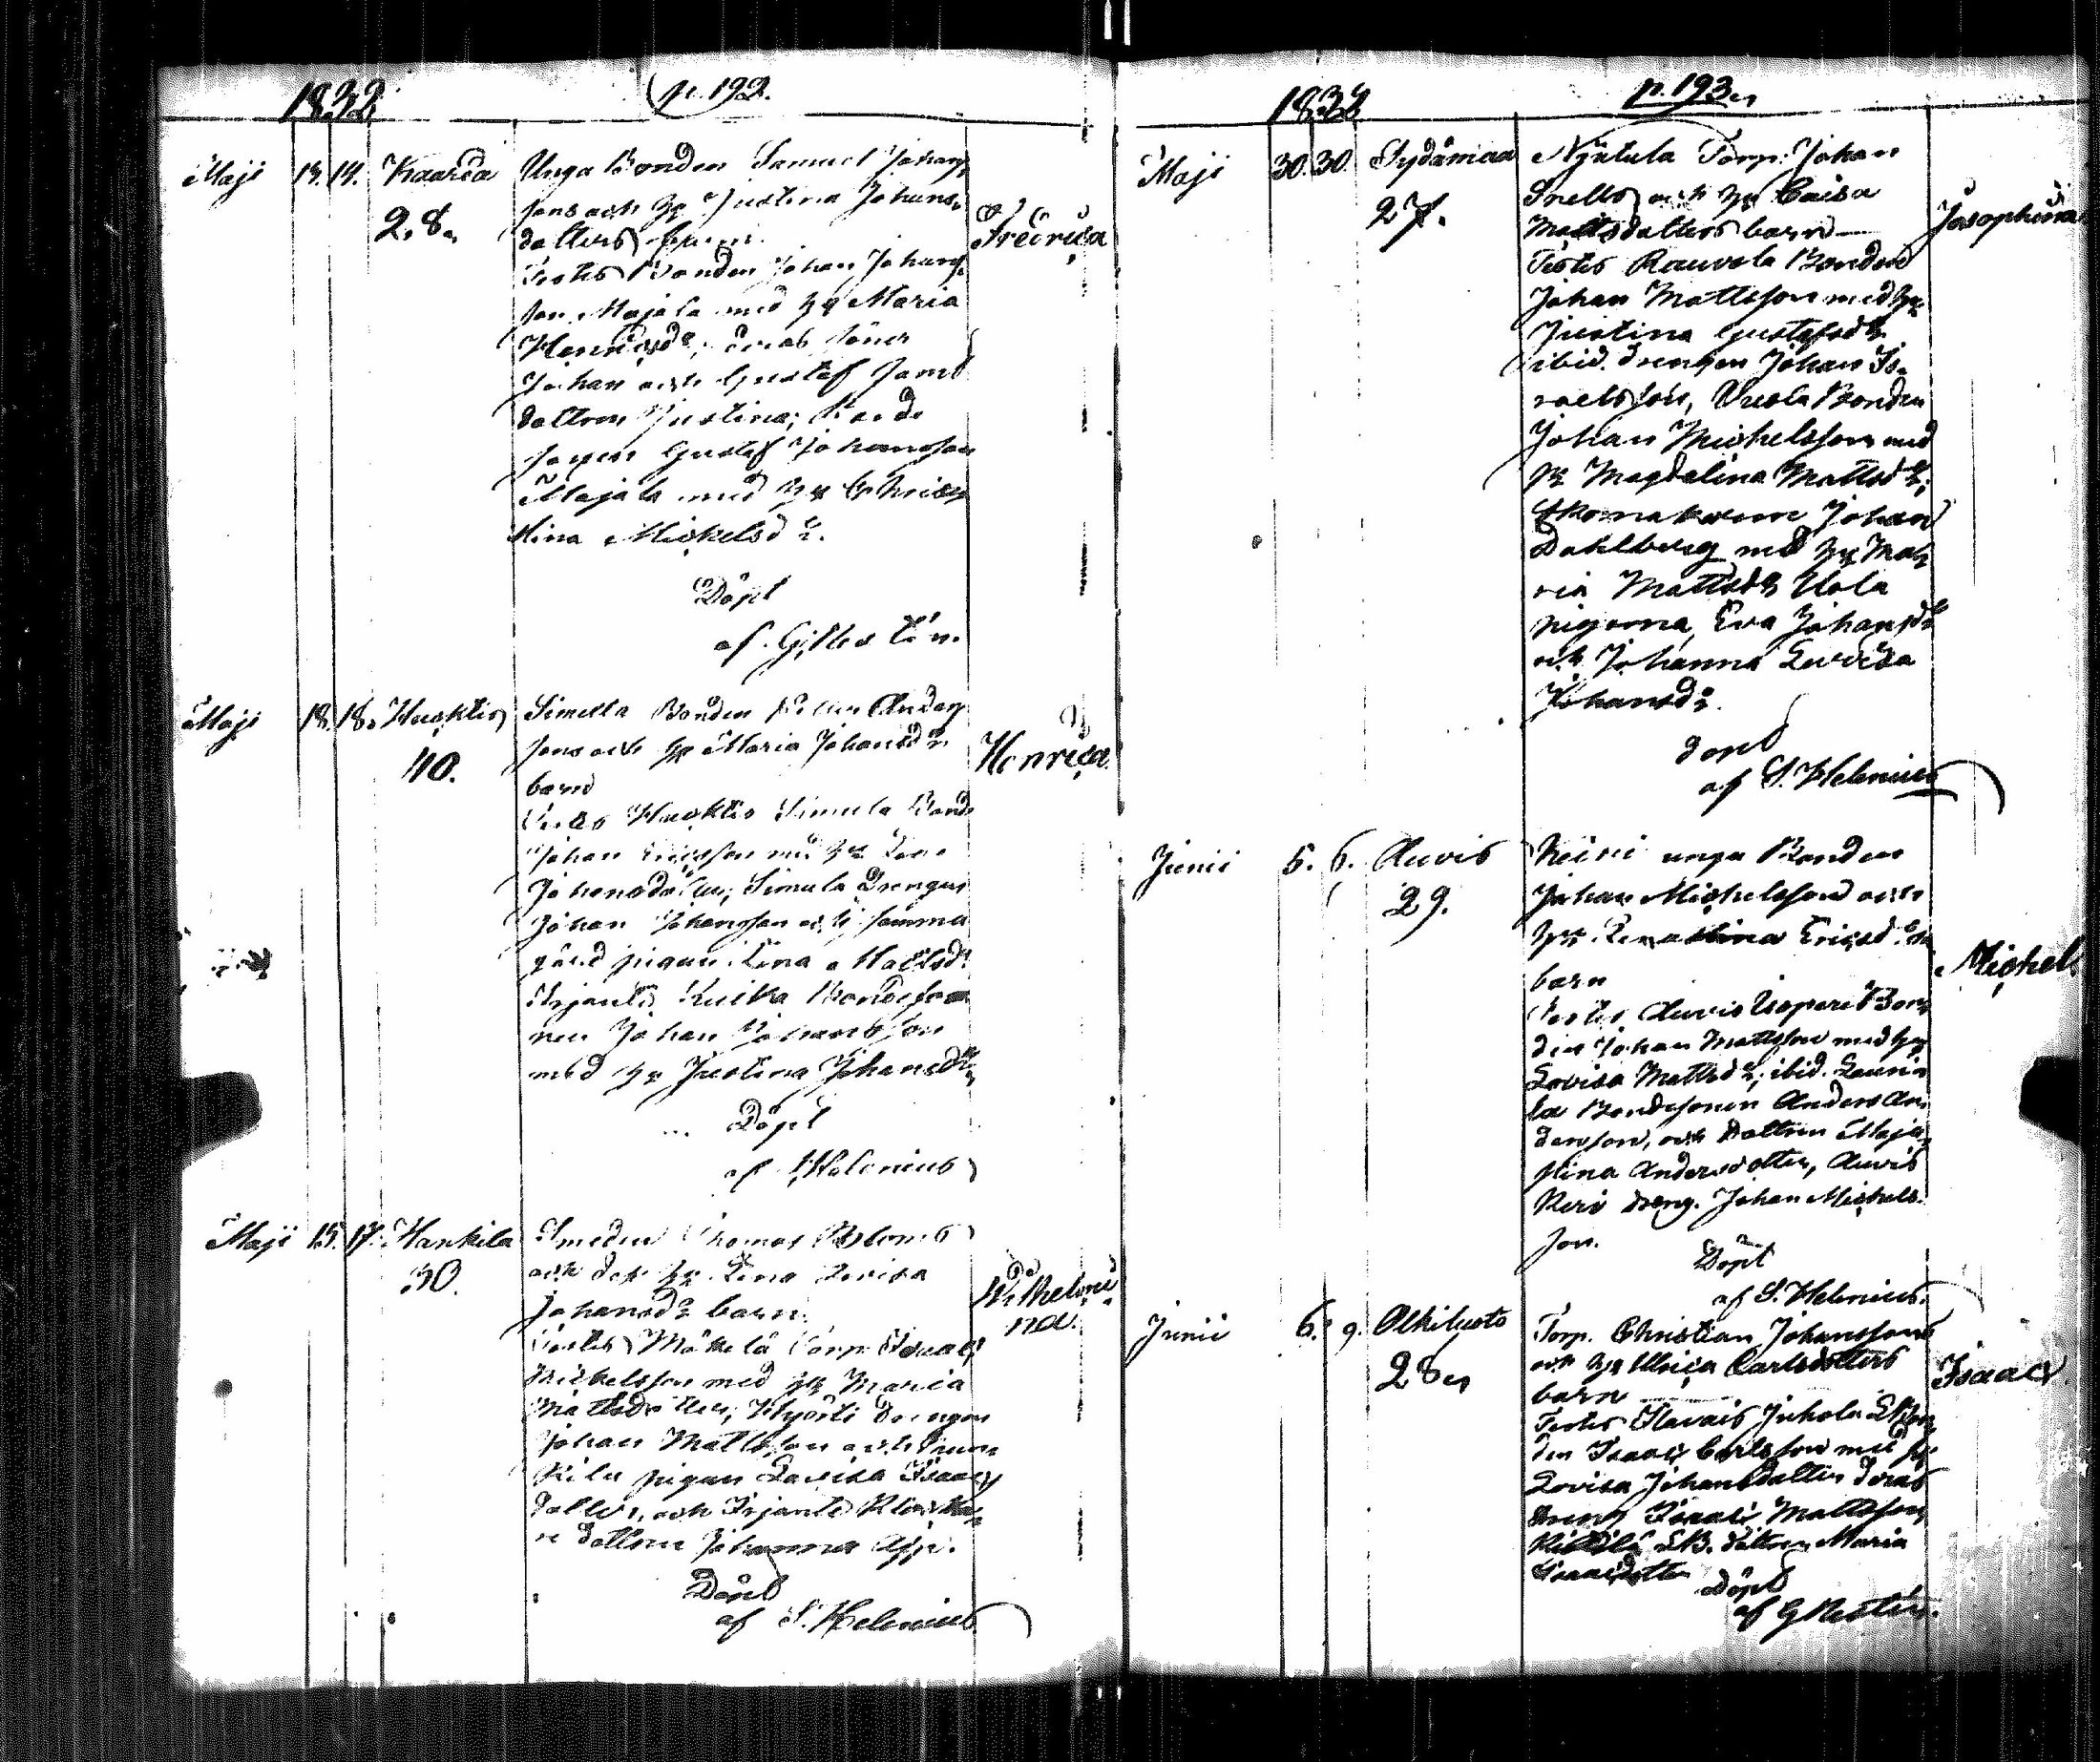 1832
p. 192.
Maji 13. 14. Kaarea Unga Bonden Samuel Johans
28. sons och hu Justina Johans
dotters barn Fredrica
Testes Bonden Johan Johans
son Majala med hu Maria
Henricsdr, deras söner
Johan och Gustaf samt
dottren Justina; Bonde
sonen Gustaf Johansson
Majala med hu Chris
tina Michelsdr.
Döpt
af. G
Maji 18. 18. Huoktis Simula Bonden Anders
sons och hu Maria Johansdr
40. barn Henrica
Testes Huoktis Simula Bond
Johan Ericsson med hu Lena
Johansdotter, Simula Drengen
Johan Johansson och samma
gård pigan Lina Mattsd.
Irjantö Kuika Bondeso
nen Johan Johansson
med hu Justina Johansdr
Döpt
af Helenius
Maji 15. 17. Hankila Smeden Thomas Bloms
30. och dess hu Lena Lovisa
Johansdr barn Wilhelmi
na.
Testes Mäkelä Torp. Isaac
Michelsson med hu Maria
Mattsdotter, Hyörti drengen
Johan Mattsson och
kila pigan Lovisa Isaacs
dotter, och Irjantö Klockа
re dottren Johanna
Döpt
af S. Helenius
1832
p. 193
Maji 30. 30. Sydämaa Nyätula Torp. Johan
27. Snells och hu Caisa
Mattsdotters barn Josephina
Testes Rauvola Bonden
Johan Mattsson med hu
Justina Gustafsdr
ibid. drengen Johan Is
raelsson, Uusla Bonden
Johan Michelsson med
hu Magdalena Mattsdr,
Skomakaren Johan
Dahlberg med hu Ma
ria Mattsdr Uola
pigorna Eva Johansdr
och Johanna Lovisa
Johansdr.
döpt
af S. Helenius
Junii 5. 6. Auvis Keiri unga Bonden
29. Johan Michelsson och
hu Ericsdr
barn Michel.
Testes Auvis Uopari Bon
den Johan Mattsson med hu
Lovisa Mattsdr, ibid. Lauri
la Bondesonen Anders An
dersson, och Dottren Maja
stina Andersdotter, Auvis
Keri dreng. Johan Michels
son.
Döpt
af S. Helenius.
Junii 6. 9. Olkiluoto Torp. Christian Johanssons
28. och hu Ulrica Carlsdotters
barn Isaac
Testes Ilavais Juhola Bon
den Isaac Carlsson med hu
Lovisa Johansdotter deras
dreng Isaac Mattsson
dottren Maria
Isaacsdotter
Döpt
af G Restén.